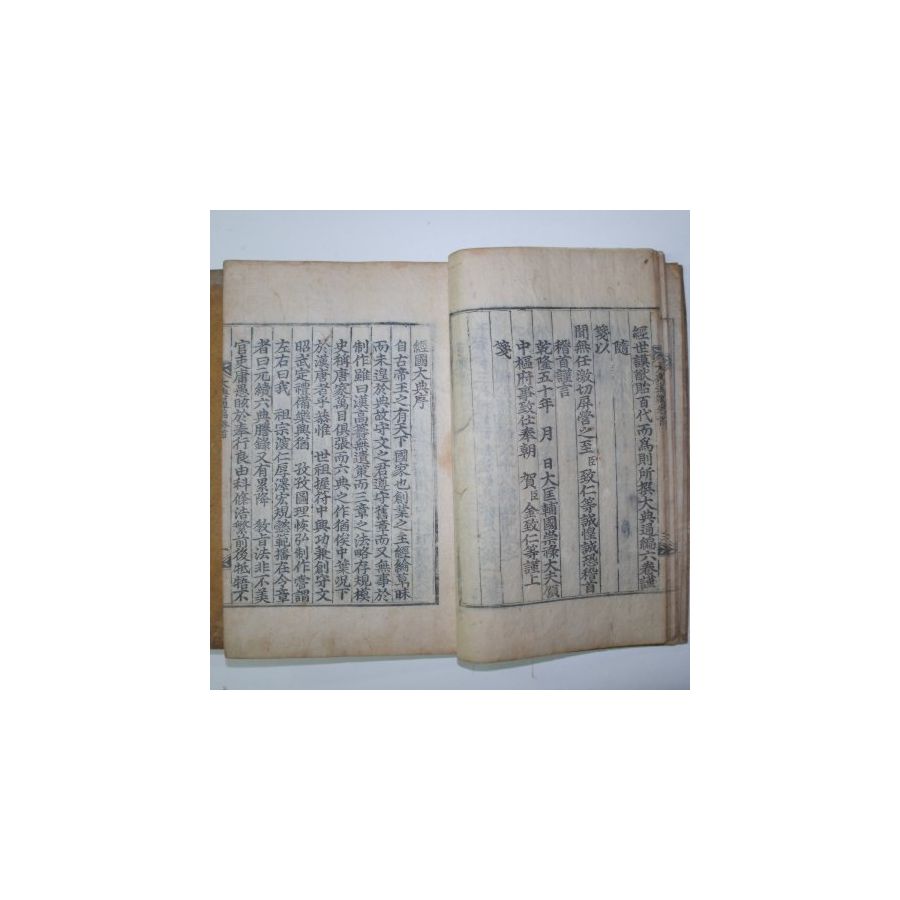 經世謨猷貽百代而爲則所撰大典通編六卷謹
隨
箋以
聞無任激切屛營之至臣致仁等誠惶誠恐稽首
稽首謹言
乾隆五十年 月 日大匡輔國崇祿大夫領
中樞府事致仕奉朝 賀臣金致仁等謹上
箋
經國大典序
自古帝王之有天下國家也創業之主經綸草昧
而未遑於典故守文之君遵守舊章而又無事於
制作雖曰漢高筭無遺策而三章之法略存規模
史稱唐家萬目俱張而六典之作猶俟中葉況下
於漢唐者乎恭惟 世祖握符中興功兼創守文
昭武定禮備樂興猶 孜孜圖理恢弘制作嘗謂
左右曰我 祖宗深仁厚澤宏規懿範播在令章
者曰元續六典謄錄又有累降 敎旨法非不美
官吏庸愚眩於奉行良由科條浩繁前後牴牾不